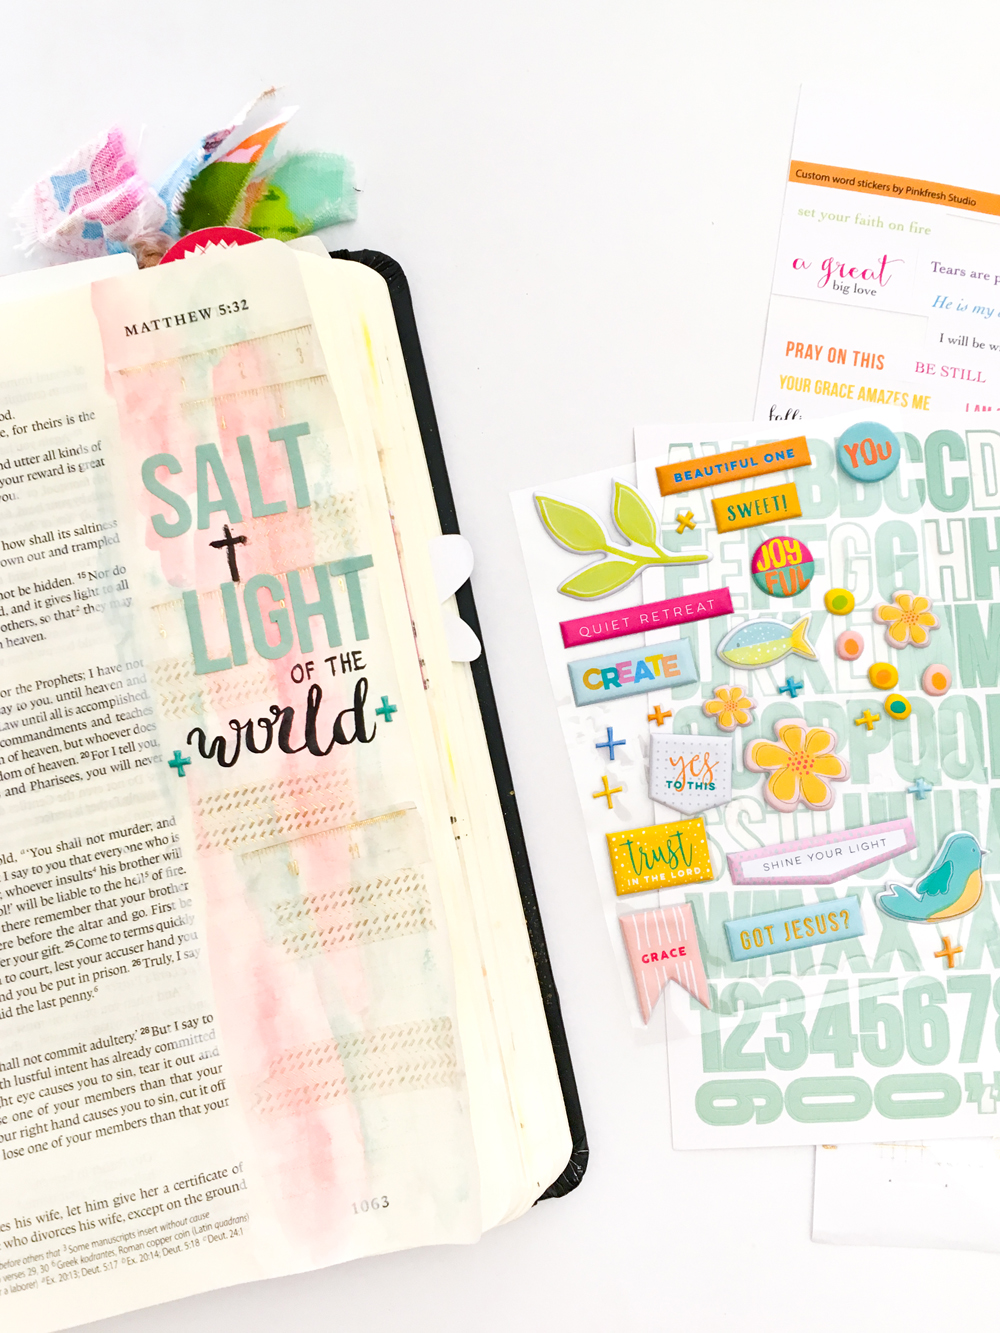 MATTHEW 5:32
od.
e, for theirs is the
nd utter all kinds of
your reward is great
you.
how shall its saltiness
own out and trampled
not be hidden. 15 Nor do
d, and it gives light to all
others, so that 2 they may
n heaven.
or the Prophets; I have not
ay to you, until heaven and
Law until all is accomplished.
commandments and teaches
n of heaven, but whoever does
dom of heaven. 20 For I tell you,
and Pharisees, you will never
old, "'You shall not murder; and
I say to you that everyone who is
; whoever insults 4 his brother will
ol!' will be liable to the hell 5 of fire.
there remember that your brother
ere before the altar and go. First be
er your gift. 25 Come to terms quickly
to court, lest your accuser hand you
nd you be put in prison. 26 Truly, I say
id the last penny. 6
hall not commit adultery.' 28 But I say to
th lustful intent has already committed
ht eye causes you to sin, tear it out and
se one of your members than that your
our right hand causes you to sin, cut it off
lose one of your members than that your
es his wife, let him give her a certificate of
who divorces his wife, except on the ground
before others that 3 Some manuscripts insert without cause
verses 29, 30 6 Greek kodrantes, Roman copper coin (Latin quadrans)
r a laborer) Ex. 20:13; Deut. 5:17 Ex. 20:14; Deut. 5:18 Deut. 24:1
SALT
LIGHT
OF THE
world
1063
Custom word stickers by Pinkfresh Studio
set your faith on fire
a great
big love
Tears are p
He is my
I will be w
PRAY ON THIS
BE STILL
YOUR GRACE AMAZES ME
I AM
BEAUTIFUL ONE
YOU
SWEET!
JOY
FUL
QUIET RETREAT
CREATE
yes
TO THIS
trust
IN THE LORD
SHINE YOUR LIGHT
GRACE
GOT JESUS?
1234567